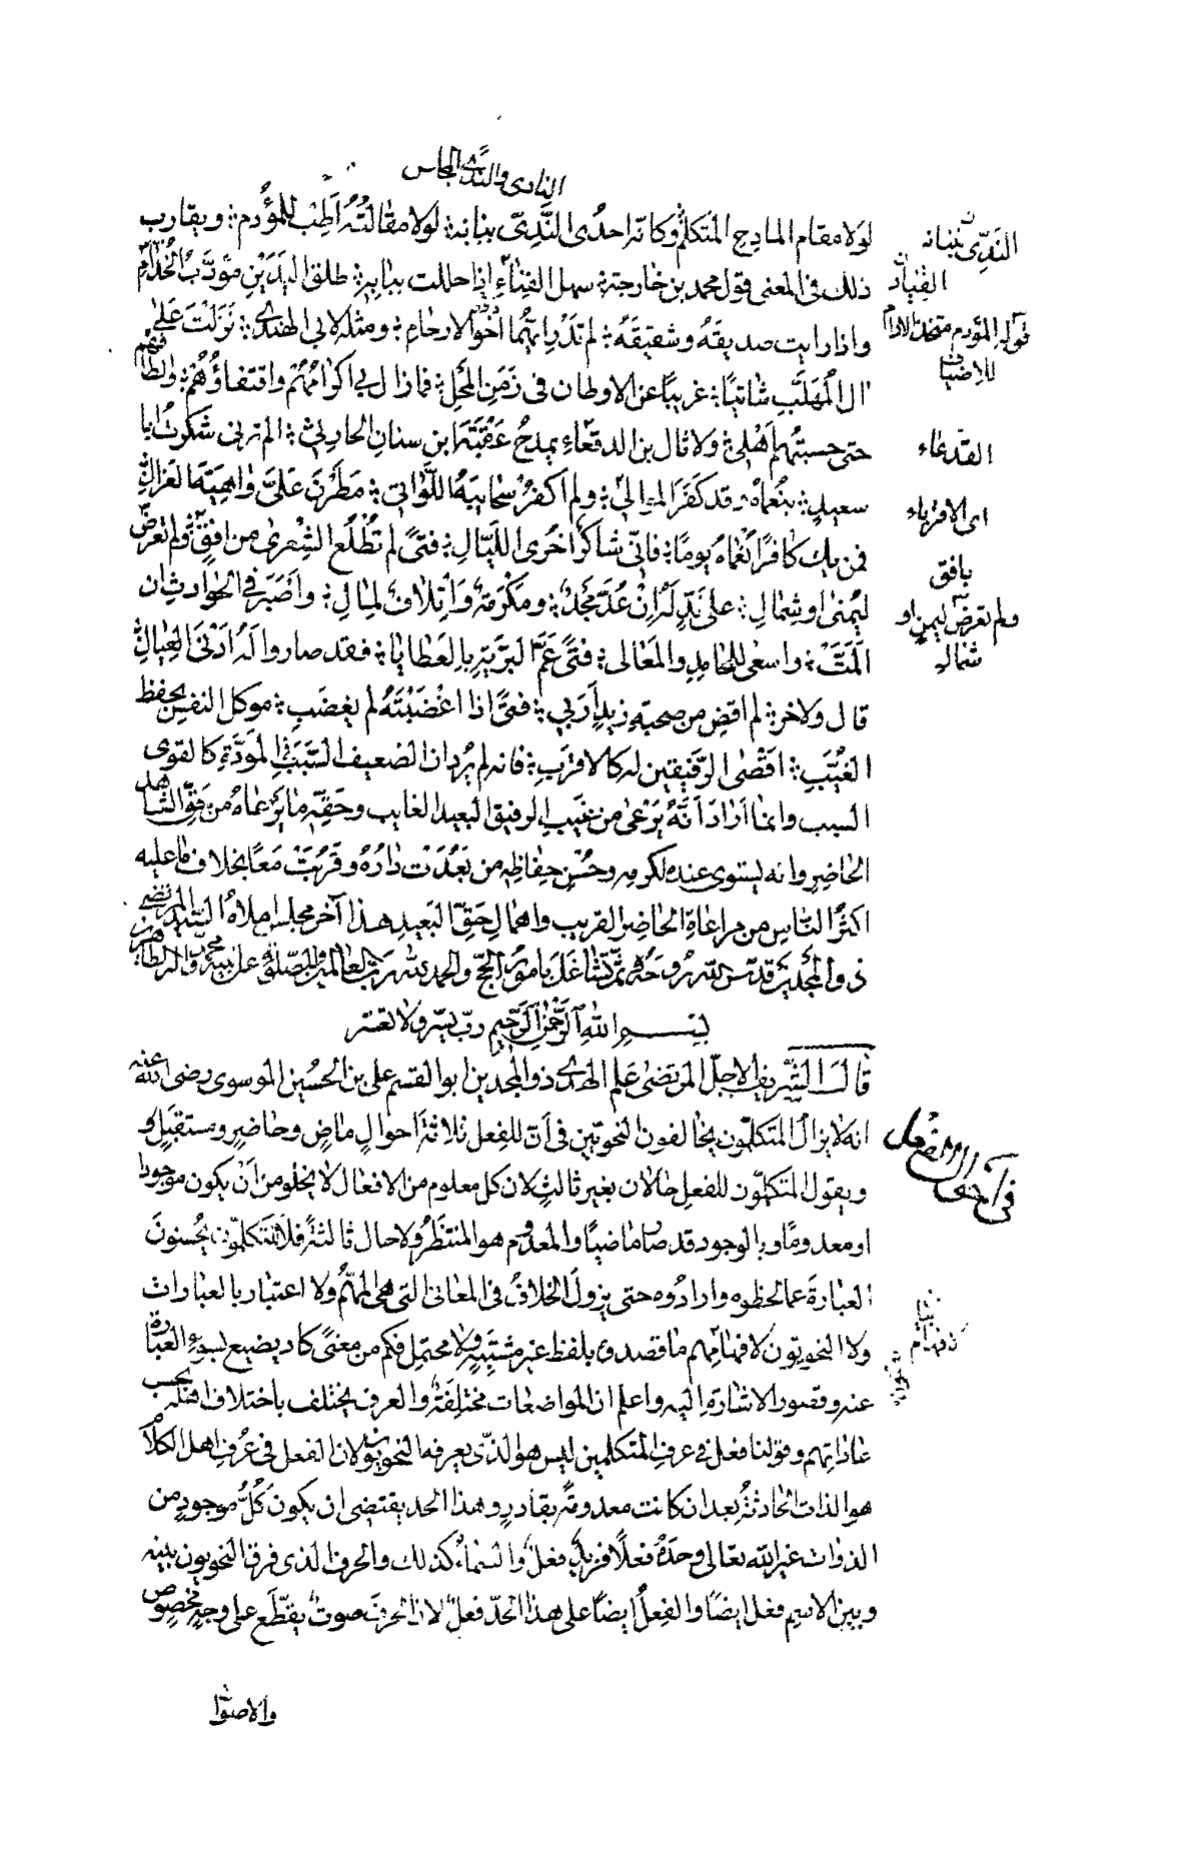 النادى والندى المجلس
لولا مقام المادح المتكلم وكانه احدى الندىّ ببنانه لولا مقالته أطب للمؤدم ويقارب
ذلك فى المعنى قول محمد بن خارجة سهل الفناء إذا حللت ببابه طلق اليدين مؤدّب الخدّام
واذا رايت صديقه وشقيقه لم تدر ايهما أخو الارحام ومثله لابي الهندى نزلت على
ال المهلّب شاتيًا غريبًا عن الاوطان فى زمن المحل فما زال بي اكرامهم واقتفاؤهم والطافهم
حتى حسبتهم اهلى ولا قال بن الدقعاء يمدح عقبة ابن سنان الحارثى الم ترنى شكرت ابا
سعيد بنعماه وقد كفر الموالى ولم اكفر سحايبه اللواتى مطرن علىّ واهية العزالى
فمن يك كافرًا نعماه يومًا فانى شاكر اخرى الليالى فتى لم تطلع الشعرى من افق ولم تعرض
ليمنى او شمال على ندّ له إن عدّ مجد ومكرمة وإتلاف لمال واصبر فى الحوادث ان
المّت واسعى للمحامد والمعالى فتى عمّ البريّة بالعطايا فقد صاروا له ادنى العيال
قال ولاخر لم اقض من صحبة زيد أربي فتى اذا اغضبته لم يغضب موكل النفس بحفظ
الغيّب اقصى الرفيقين له كالاقرب فانه لم يرد ان الضعيف السبب فى المودّة كالقوى
السبب وانما أراد أنه يرعى من غيب الرفيق البعيد الغايب وحقّه ما يرعاه من حقّ الشاهد
الحاضر وانه يستوى عنده لكرمه وحسن حفاظه من بعدت داره وقربت معا بخلاف ما عليه
اكثر الناس من مراعاة الحاضر القريب واهمال حق البعيد هذا آخر مجلس املاه السيد المرتضى
ذو المجدين قدّس الله روحه ثم تشاغل بامور الحج والحمد لله رب العالمين والصلوة على نبيه محمد وآله الطاهرين
بسم الله الرحمن الرحيم رب يسر ولا تعسر
قال الشريف الاجل المرتضى علم الهدى ذو المجدين ابو القسم على بن الحسين الموسوى رضى الله عنه
انه لا يزال المتكلمون يخالفون النحويين فى أن للفعل ثلاثة احوال ماض وحاضر ومستقبل و
ويقول المتكلمون للفعل حالان بغير ثالث لان كل معلوم من الافعال لا يخلو من أن يكون موجودا
او معدوما وبالوجود قد صار ماضيًا والمعدوم هو المنتظر ولا حال ثالثة فلا المتكلمون يحسنون
العبارة عما لحظوه وارادوه حتى يزول الخلاف فى المعانى التى هى المهم ولا اعتبار بالعبارات
ولا النحويون لافهامهم ما قصدوه بلفظ غير مشتبه ولا محتمل فكم من معنى كاد يضيع بسوء العبارة
عنه وقصور الاشارة اليه واعلم ان المواضعات مختلفة والعرف يختلف باختلاف اهله بحسب
عاداتهم وقولنا فعل فى عرف المتكلمين ليس هو الذى يعرفه النحويون لان الفعل فى عرف اهل الكلام
هو الذات الحادثة بعد ان كانت معدومة بقادر وهذا الحد يقتضى ان يكون كل موجود من
الذوات غير الله تعالى وحده فعلاً فزيد فعل والسماء كذلك والحرف الذى فرق النحويون بينه
وبين الاسم فعل ايضا والفعل ايضا على هذا الحدّ فعل لان الحرف صوت يقطّع على وجه مخصوص
والاصوات
الندىّ ببنانه
الفتيان
قوله المؤدم متخذ الادام
للاضياف
القدعاء
اى الاقرباء
بافق
ولم تعرض ليمن او
شمال